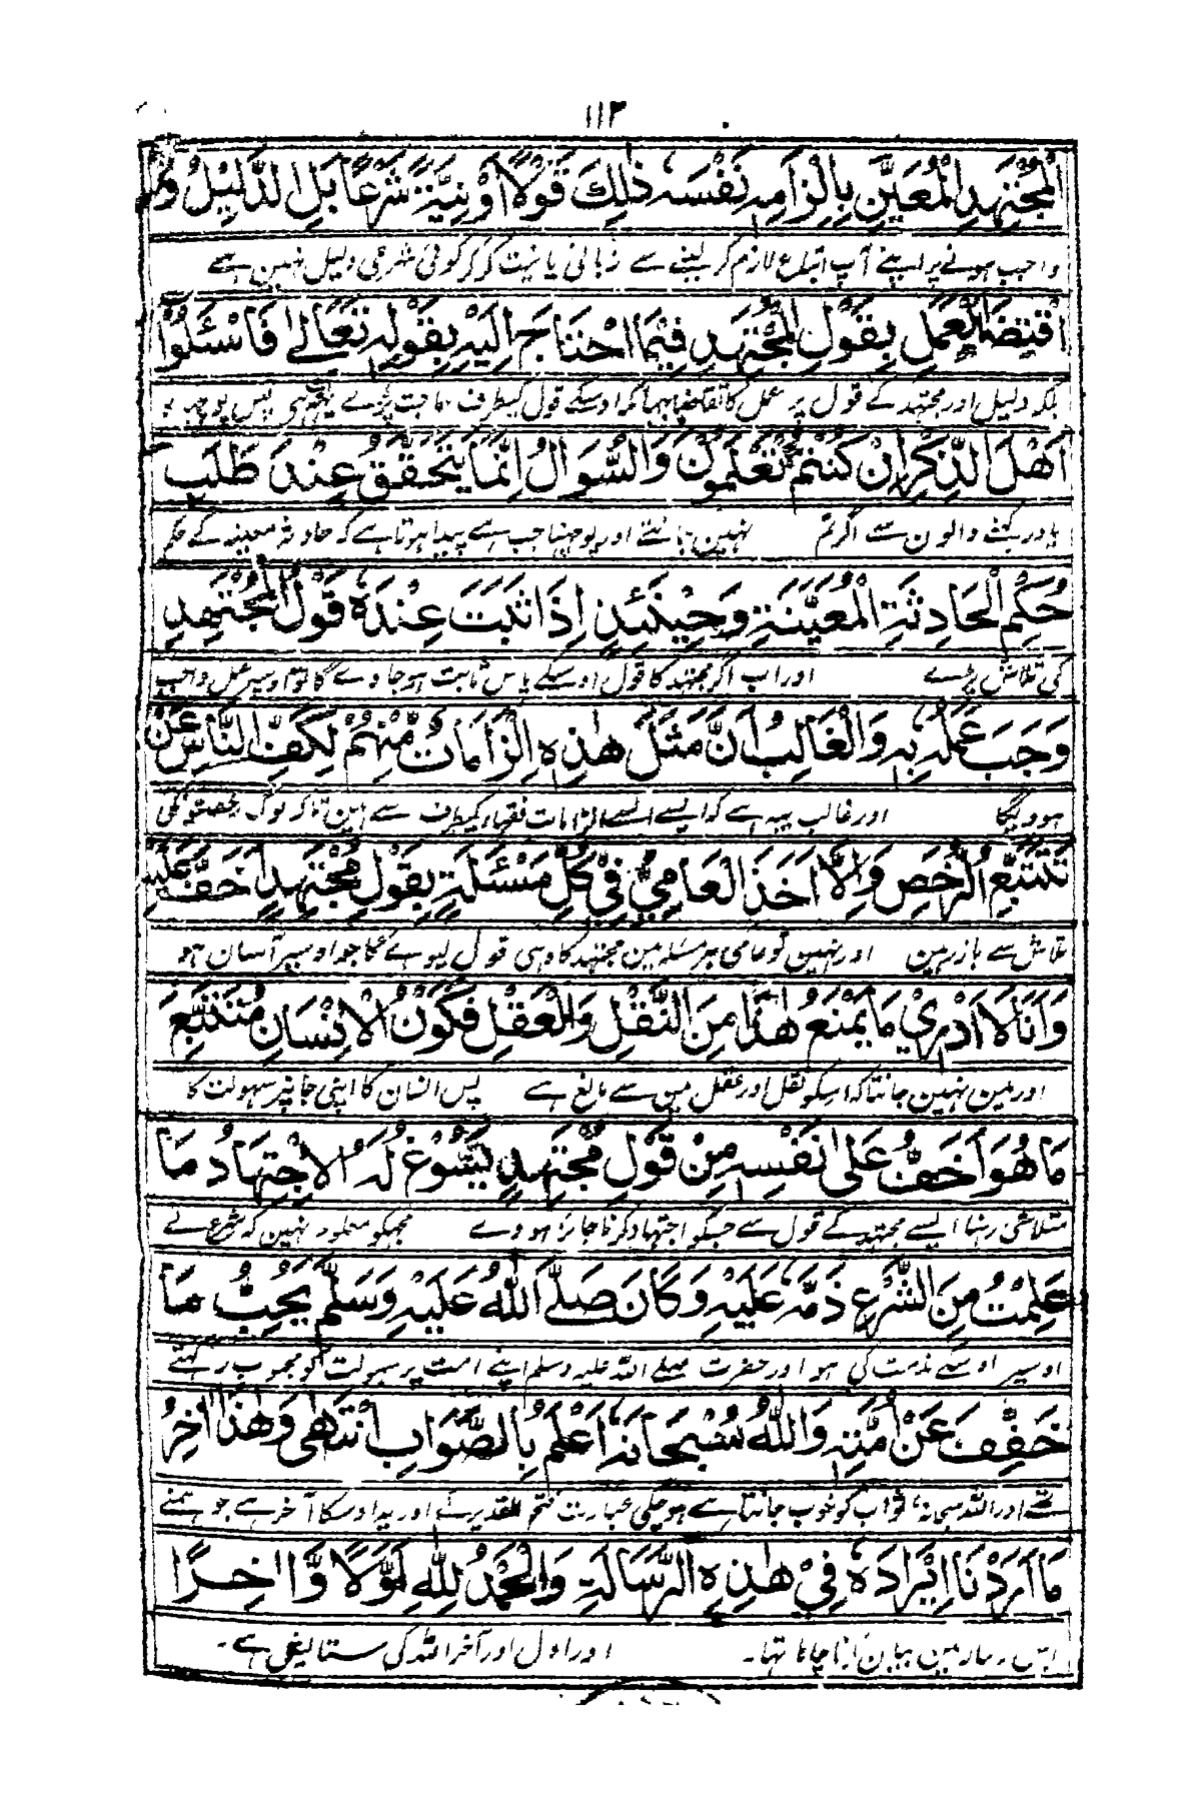 ١١٢
الْمُجْتَهِدِ الْمُعَيَّنِ بِاِلْزَامِهِ نَفْسَهٗ ذٰلِكَ قَوْلًا اَوْ نِيَّةً شَرْعًا بَلِ الدَّلِيْلُ
واجب ہونے پر اپنے آپ اتباع لازم کر لینے سے زبانی یا نیت کر کر کوئی شرعی دلیل نہین ہے
اقْتَضَى الْعَمَلَ بِقَوْلِ الْمُجْتَهِدِ فِيْمَا احْتَاجَ اِلَيْهِ بِقَوْلِهٖ تَعَالٰى فَاسْئَلُوْٓا
بلکہ دلیل اور مجتہد کے قول پر عمل کا تقاضا کہ اوسکے قول کیطرف حاجت پڑے پس پوچہو
اَهْلَ الذِّكْرِ اِنْ كُنْتُمْ لَا تَعْلَمُوْنَ وَالسُّوَالُ اِنَّمَا يَتَحَقَّقُ عِنْدَ طَلَبِ
یاد رکہنے والون سے اگر تم نہین جانتے اور پوچہنا جب ہے پیدا ہوتا ہے کہ حادثہ معینہ کے حکم
حُكْمِ الْحَادِثَةِ الْمُعَيَّنَةِ وَحِيْنَئِذٍ اِذَا ثَبَتَ عِنْدَهٗ قَوْلُ الْمُجْتَهِدِ
کی تلاش پڑے اور اب اگر مجتہد کا قول اوسکے پاس ثابت ہو جاوے گا تو اوسپر عمل واجب
وَجَبَ عَمَلُهٗ بِهٖ وَالْغَالِبُ اَنَّ مَثَلَ هٰذِهٖ اِلْزَامَاتٌ مِّنْهُمْ لِكَفِّ النَّاسِ عَنْ
ہوویگا اور غالب یہہ ہے کہ ایسے ایسے الزامات فقہاء کیطرف سے ہین تاکہ لوگ رخصتونکی
تَتَبُّعِ الرُّخَصِ وَاِلَّا اَخَذَ الْعَامِيُّ فِيْ كُلِّ مَسْئَلَةٍ بِقَوْلِ مُجْتَهِدٍ اَخَفَّ عَلَيْهِ
تلاش سے باز رہین اور نہین تو عامی ہر مسئلہ مین مجتہد کا وہی قول لیوے گا جو اوسپر آسان ہو
وَاَنَا لَا اَدْرِيْ مَا يَمْنَعُ هٰذَا مِنَ النَّقْلِ وَالْعَقْلِ فَكَوْنُ الْاِنْسَانِ مُتَتَبِّعَ
اور مین نہین جانتا کہ اسکو نقل اور عقل مین سے مانع ہے پس انسان کا اپنی جانپر سہولت کا
مَا هُوَ اَخَفُّ عَلٰى نَفْسِهٖ مِنْ قَوْلِ مُجْتَهِدٍ يَسُوْغُ لَهُ الْاِجْتِهَادُ مَا
متلاشی رہنا ایسے مجتہد کے قول سے جسکو اجتہاد کرنا جائز ہووے مجہکو معلوم نہین کہ شرع نے
عَلِمْتُ مِنَ الشَّرْعِ ذَمَّهٗ عَلَيْهِ وَكَانَ صَلَّى اللّٰهُ عَلَيْهِ وَسَلَّمَ يُحِبُّ مَا
اوسپر اوسکے مذمت کی ہو اور حضرت صلے اللہ علیہ وسلم اپنے امت پر سہولت کو محبوب رکہتے
خَفَّفَ عَنْ اُمَّتِهٖ وَاللّٰهُ سُبْحَانَهٗ اَعْلَمُ بِالصَّوَابِ انْتَهٰى وَهٰذَا اٰخِرُ
تہے اور اللہ سبحانہ ثواب کو خوب جانتا ہے ہو چکی عبارت فتح القدیر کے اور یہہ اوسکا آخر ہے جو ہمنے
مَا اَرَدْنَا اِيْرَادَهٗ فِيْ هٰذِهِ الرِّسَالَةِ وَالْحَمْدُ لِلّٰهِ اَوَّلًا وَّاٰخِرًا
اس رسالہ مین بیان کرنا چاہا تہا۔ اور اول اور آخر اللہ کی ستایش ہے۔